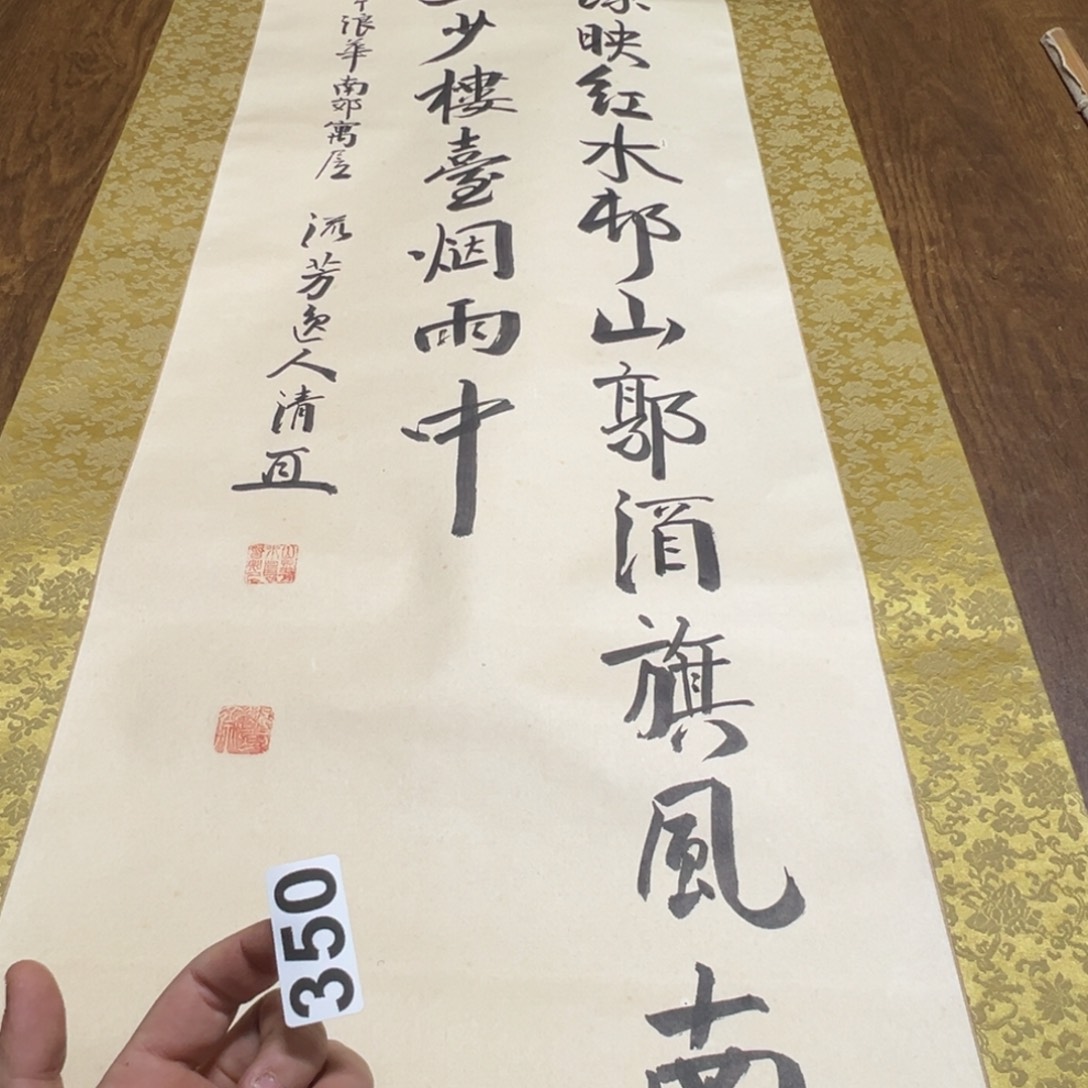 綠映紅水邨山郭酒旗風南
少樓臺烟雨中
浪華南郊寓居
流芳逸人清亘
350